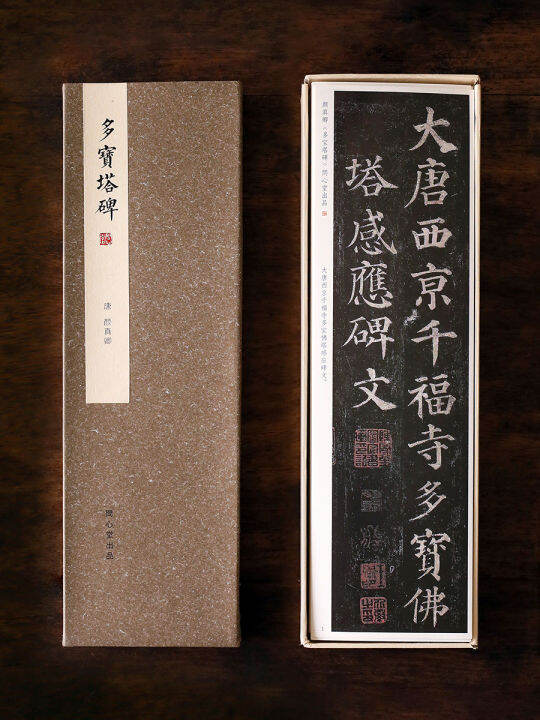 多寶塔碑
唐 顏真卿
問心堂出品
大唐西京千福寺多寶佛
塔感應碑文
顏真卿《多宝塔碑》問心堂出品
大唐西京千福寺多宝佛塔感应碑文。
1